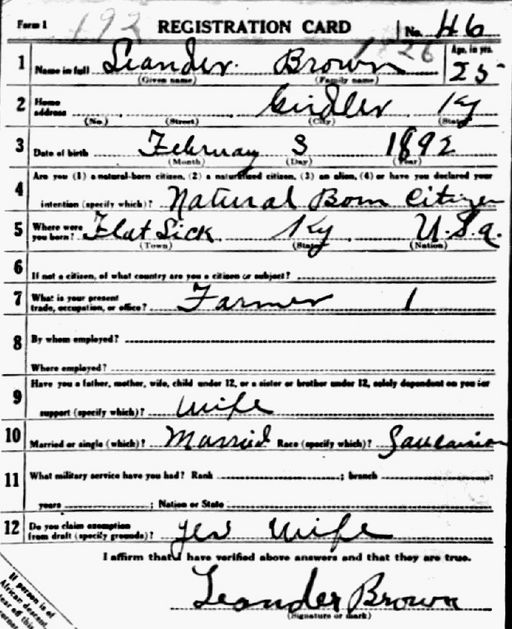 Form 1 192 REGISTRATION CARD No. 46
1 Name in full Leander Brown Age, in yrs. 25
(Given name) (Family name)
2 Home address Girdler Ky
(No.) (Street) (City) (State)
3 Date of birth February 3 1892
(Month) (Day) (Year)
4 Are you (1) a natural-born citizen, (2) a naturalized citizen, (3) an alien, (4) or have you declared your
intention (specify which)? Natural Born Citizen
5 Where were you born? Flat Lick Ky U.S.a.
(Town) (State) (Nation)
6 If not a citizen, of what country are you a citizen or subject?
7 What is your present trade, occupation, or office? Farmer 1
8 By whom employed?
Where employed?
9 Have you a father, mother, wife, child under 12, or a sister or brother under 12, solely dependent on you for
support (specify which)? Wife
10 Married or single (which)? Married Race (specify which)? Caucasion
11 What military service have you had? Rank ; branch
years ; Nation or State
12 Do you claim exemption from draft (specify grounds)? Yes Wife
I affirm that I have verified above answers and that they are true.
Leander Brown
(Signature or mark)
If person is of
African descent,
tear off this
corner